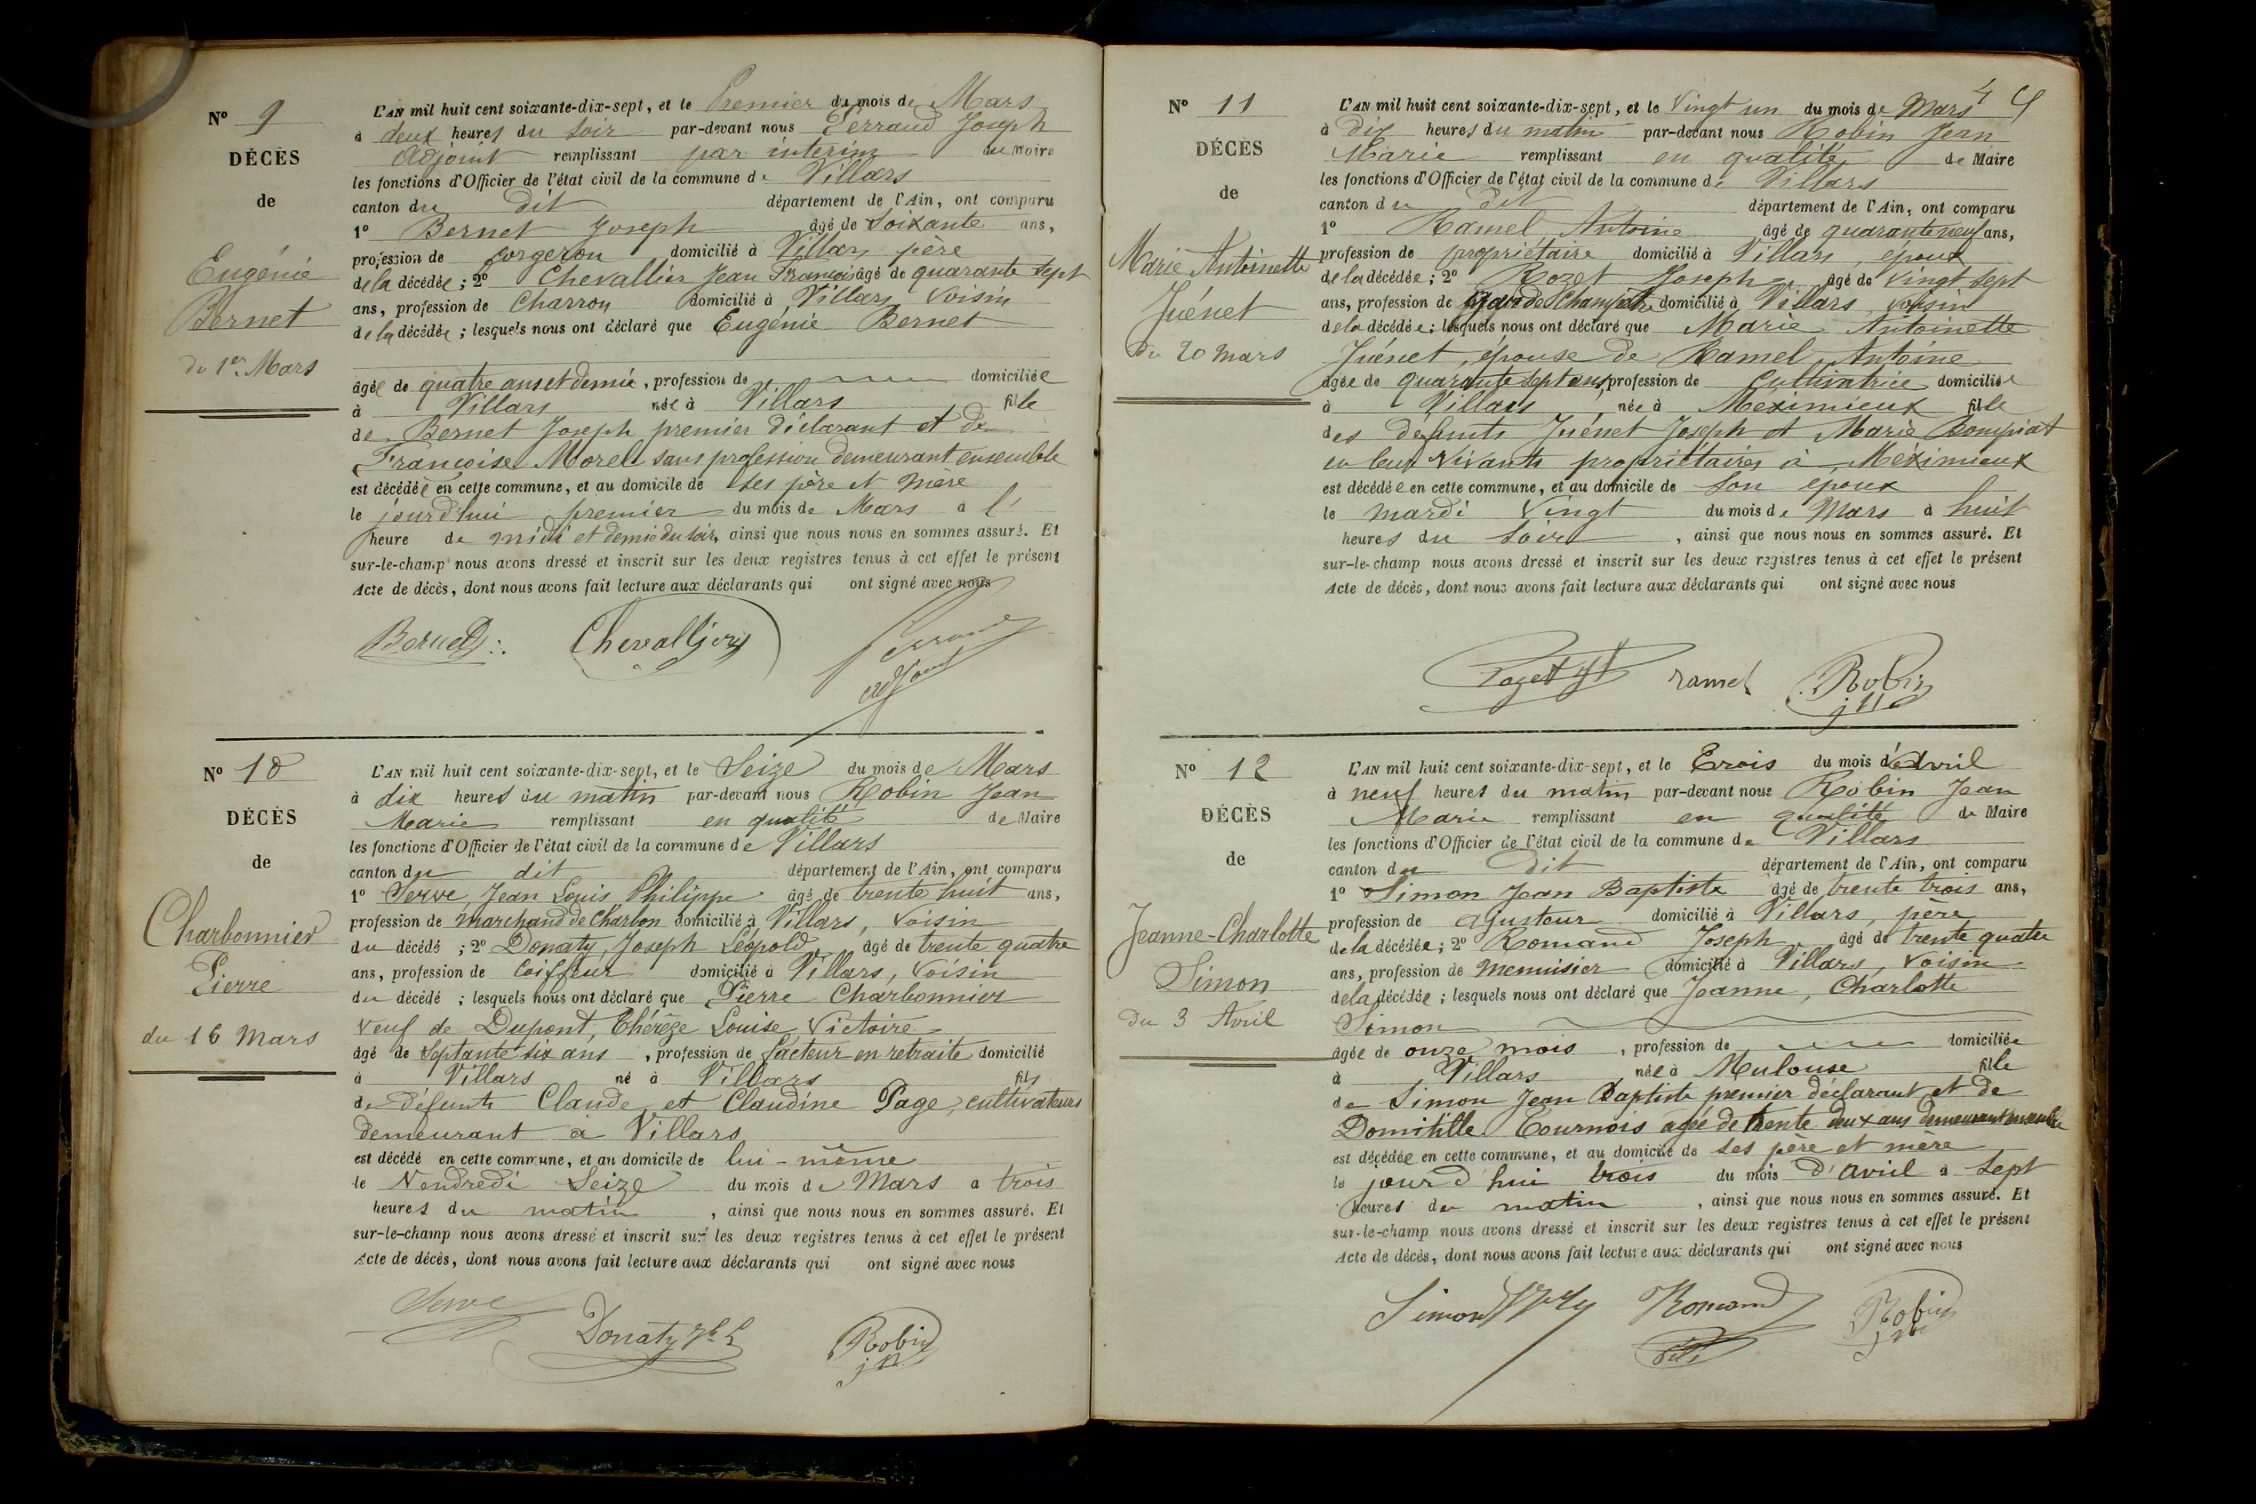 N° 9
DÉCÈS
de
Eugénie
Bernet
du 1er Mars
L'AN mil huit cent soixante-dix-sept, et le Premier du mois de Mars
à deux heures du soir par-devant nous Perraud Joseph
Adjoint remplissant par interim du Maire
les fonctions d'Officier de l'état civil de la commune de Villars
canton du dit département de l'Ain, ont comparu
1° Bernet Joseph âgé de Soixante ans,
profession de forgeron domicilié à Villars père
de la décédée ; 2° Chevallier Jean François âgé de quarante sept
ans, profession de Charron domicilié à Villars Voisin
de la décédée ; lesquels nous ont déclaré que Eugénie Bernet
âgée de quatre ans et demie, profession de domiciliée
à Villars née à Villars fille
de Bernet Joseph premier déclarant et de
Françoise Morel sans profession demeurant ensemble
est décédée en cette commune, et au domicile de ses père et mère
le jourd'hui premier du mois de Mars à l'
heure de midi et demie du soir, ainsi que nous nous en sommes assuré. Et
sur-le-champ nous avons dressé et inscrit sur les deux registres tenus à cet effet le présent
Acte de décès, dont nous avons fait lecture aux déclarants qui ont signé avec nous
Bernet Chevallier Perraud
adjoint
N° 10
DÉCÈS
de
Charbonnier
Pierre
du 16 Mars
L'AN mil huit cent soixante-dix-sept, et le Seize du mois de Mars
à dix heures du matin par-devant nous Robin Jean
Marie remplissant en qualité de Maire
les fonctions d'Officier de l'état civil de la commune de Villars
canton du dit département de l'Ain, ont comparu
1° Serve, Jean Louis Philippe âgé de trente huit ans,
profession de marchand de Charbon domicilié à Villars, Voisin
du décédé ; 2° Donaty, Joseph Léopold, âgé de trente quatre
ans, profession de Coiffeur domicilié à Villars, Voisin
du décédé ; lesquels nous ont déclaré que Pierre Charbonnier
Veuf de Dupont, Thérèze Louise, Victoire
âgé de Septante six ans, profession de facteur en retraite domicilié
à Villars né à Villars fils
de défunts Claude et Claudine Page, cultivateurs
demeurant à Villars
est décédé en cette commune, et au domicile de lui-même
le Vendredi Seize du mois de Mars à trois
heures du matin, ainsi que nous nous en sommes assuré. Et
sur-le-champ nous avons dressé et inscrit sur les deux registres tenus à cet effet le présent
Acte de décès, dont nous avons fait lecture aux déclarants qui ont signé avec nous
Serve Donaty Robin
N° 11
DÉCÈS
de
Marie Antoinette
Juénet
Du 20 Mars
4 4
L'AN mil huit cent soixante-dix-sept, et le Vingt un du mois de Mars
à Dix heures du matin par-devant nous Robin Jean
Marie remplissant en qualité de Maire
les fonctions d'Officier de l'état civil de la commune de Villars
canton du dit département de l'Ain, ont comparu
1° Ramel Antoine âgé de quarante neuf ans,
profession de propriétaire domicilié à Villars, époux
de la décédée ; 2° Rozet Joseph âgé de Vingt sept
ans, profession de garde Champêtre domicilié à Villars, voisin
de la décédée ; lesquels nous ont déclaré que Marie Antoinette
Juénet, épouse de Ramel Antoine
âgée de quarante sept ans, profession de Cultivatrice domiciliée
à Villars née à Meximieux fille
des défunts Juénet Joseph et Marie Compiat
en leur vivants propriétaires à Meximieux
est décédée en cette commune, et au domicile de son époux
le mardi Vingt du mois de Mars à huit
heures du Soir, ainsi que nous nous en sommes assuré. Et
sur-le-champ nous avons dressé et inscrit sur les deux registres tenus à cet effet le présent
Acte de décès, dont nous avons fait lecture aux déclarants qui ont signé avec nous
Rozet ramel Robin
N° 12
DÉCÈS
de
Jeanne-Charlotte
Simon
Du 3 Avril
L'AN mil huit cent soixante-dix-sept, et le Trois du mois d'Avril
à neuf heures du matin par-devant nous Robin Jean
Marie remplissant en qualité de Maire
les fonctions d'Officier de l'état civil de la commune de Villars
canton du dit département de l'Ain, ont comparu
1° Simon Jean Baptiste âgé de trente trois ans,
profession de ajusteur domicilié à Villars, père
de la décédée ; 2° Romand Joseph âgé de trente quatre
ans, profession de menuisier domicilié à Villars, voisin
de la décédée ; lesquels nous ont déclaré que Jeanne, Charlotte
Simon
âgée de onze mois, profession de domiciliée
à Villars née à Mulouse fille
de Simon Jean Baptiste premier déclarant et de
Domitille Tournois agée de trente deux ans demeurant ensemble
est décédée en cette commune, et au domicile de ses père et mère
le jourd'hui trois du mois d'avril à Sept
heures du matin, ainsi que nous nous en sommes assuré. Et
sur-le-champ nous avons dressé et inscrit sur les deux registres tenus à cet effet le présent
Acte de décès, dont nous avons fait lecture aux déclarants qui ont signé avec nous
Simon Romand Robin
fils